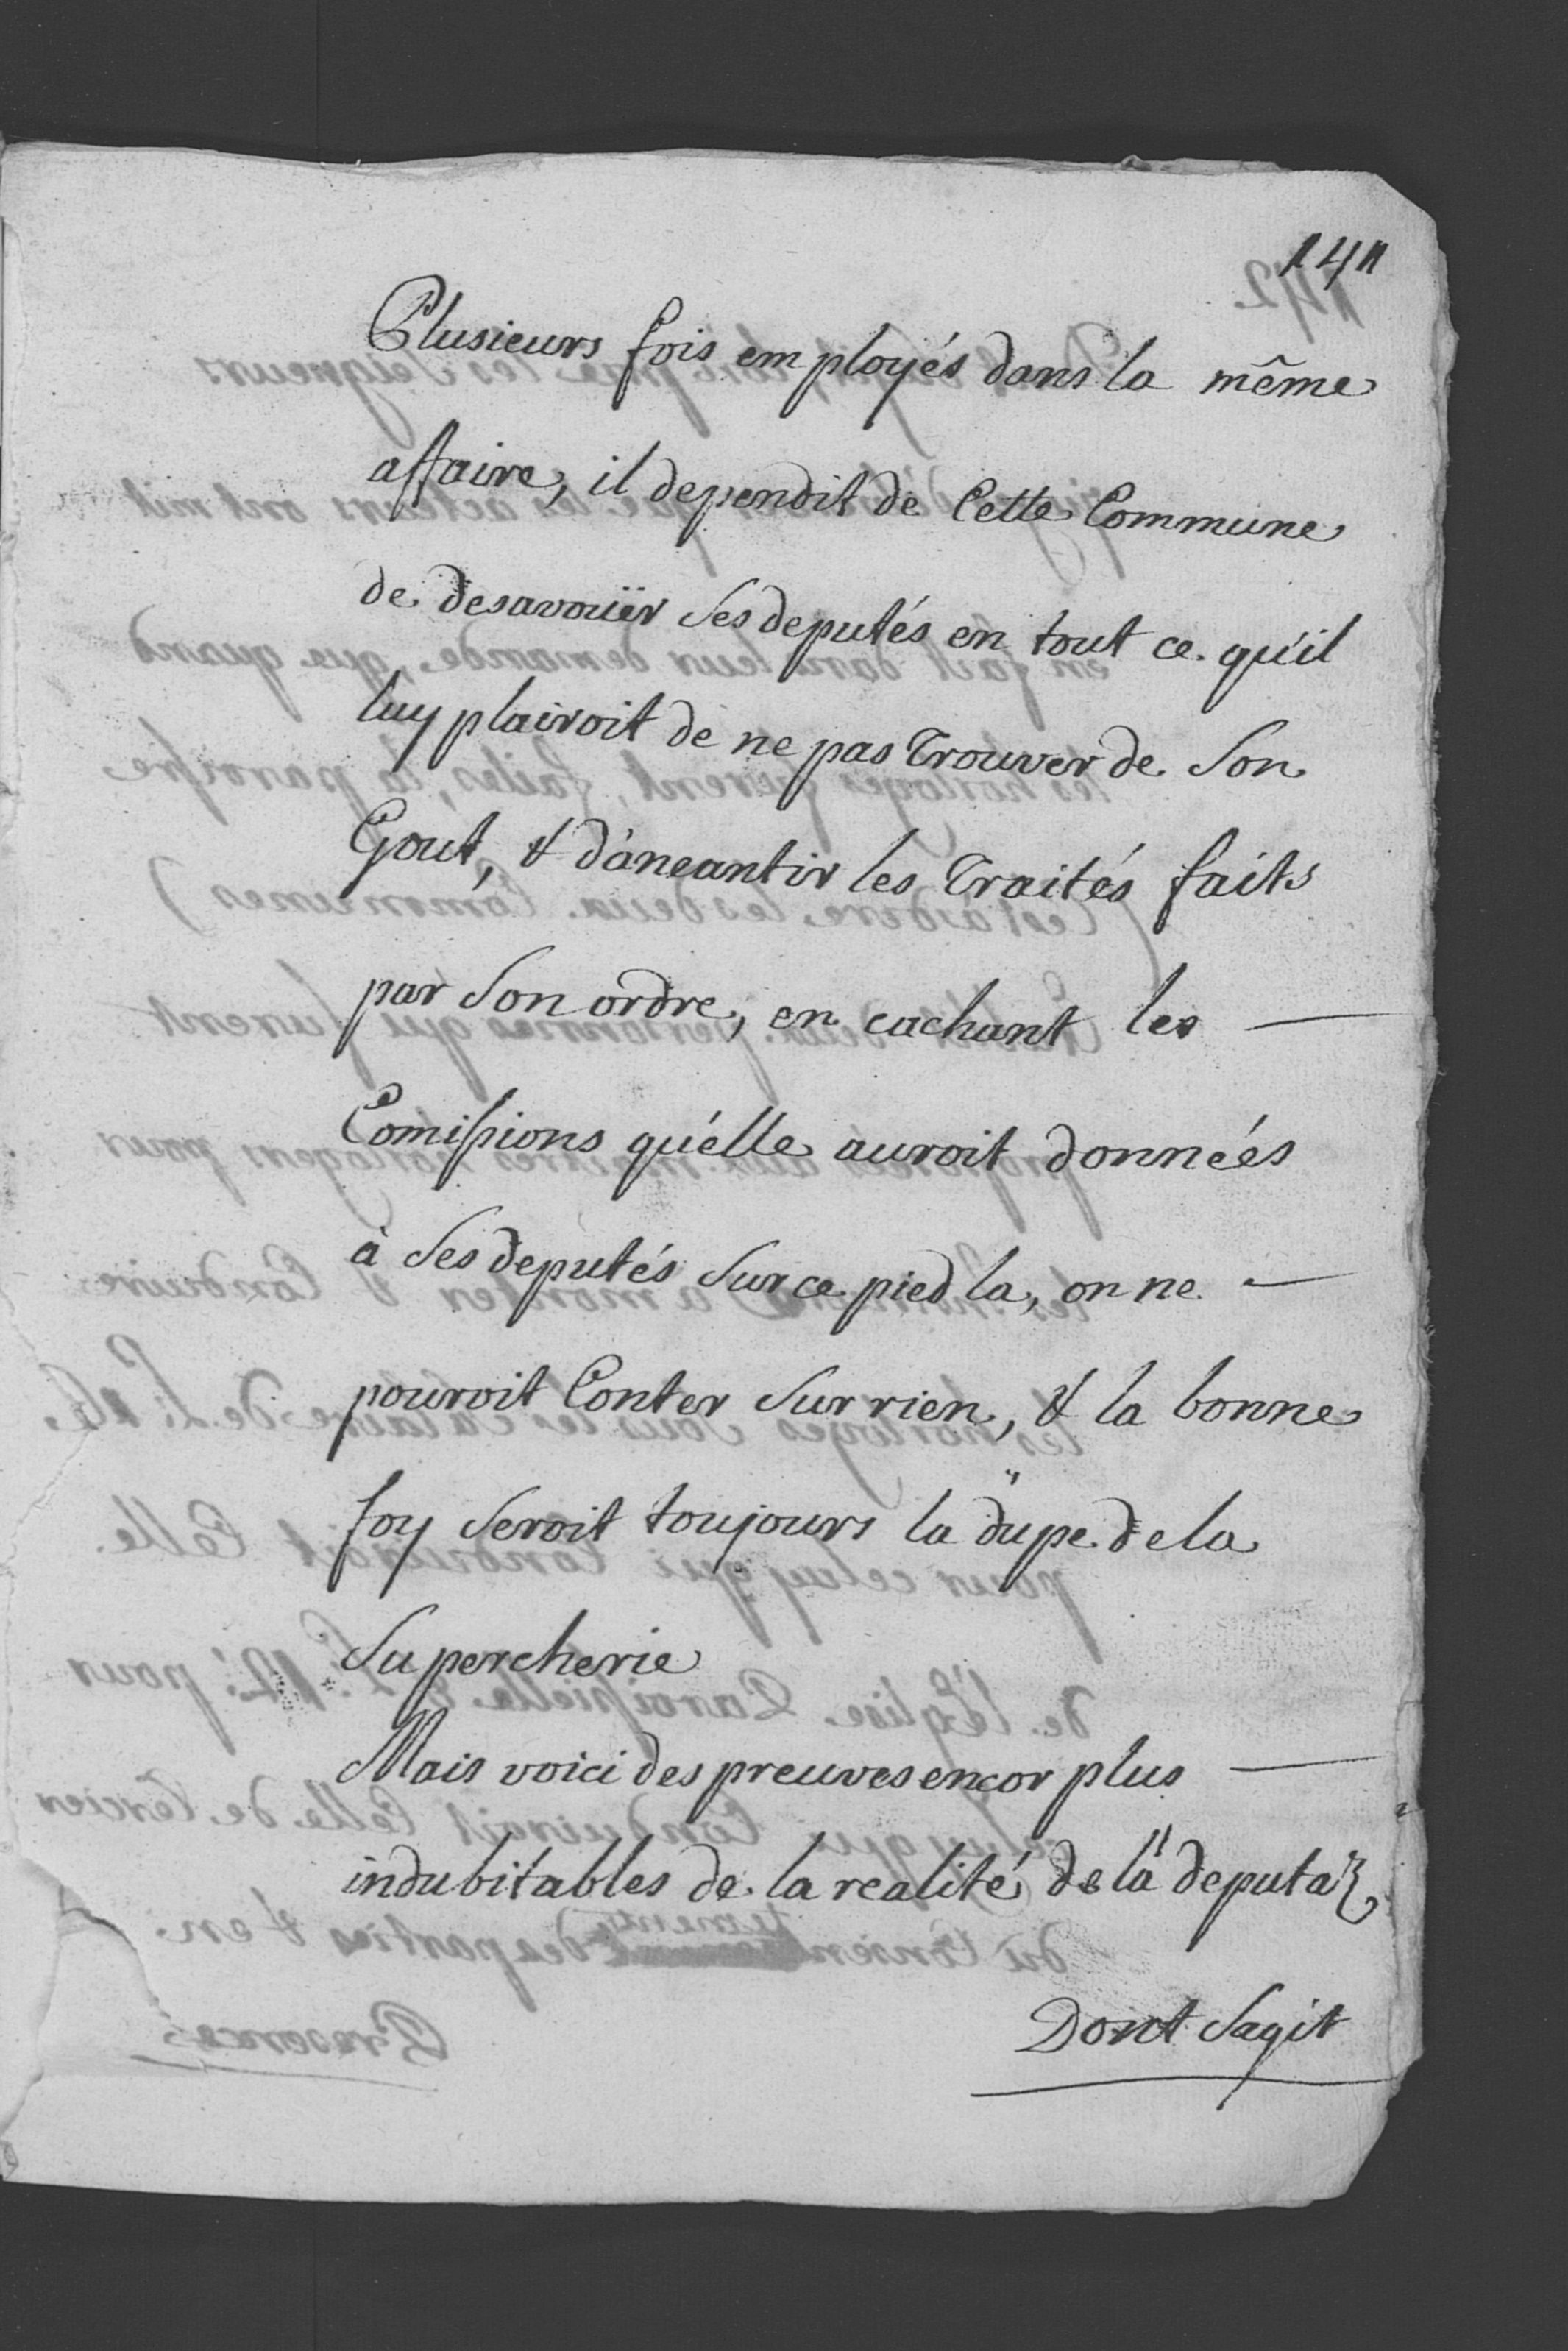 141
Plusieurs fois employés dans la même
affaire, il dependit de Cette Commune
de desavoüer Ses deputés en tout ce qu'il
luy plairoit de ne pas Trouver de Son
Gout, & d'aneantir les Traités faits
par Son ordre, en cachant les —
Comissions qu'elle auroit données
à Ses deputés Sur ce pied la, on ne —
pouroit Conter Sur rien, & la bonne
foy Seroit toujours la dupe de la
Supercherie
Mais voici des preuves encor plus —
indubitables de la realité de la deputa͠n
Dont Sagit